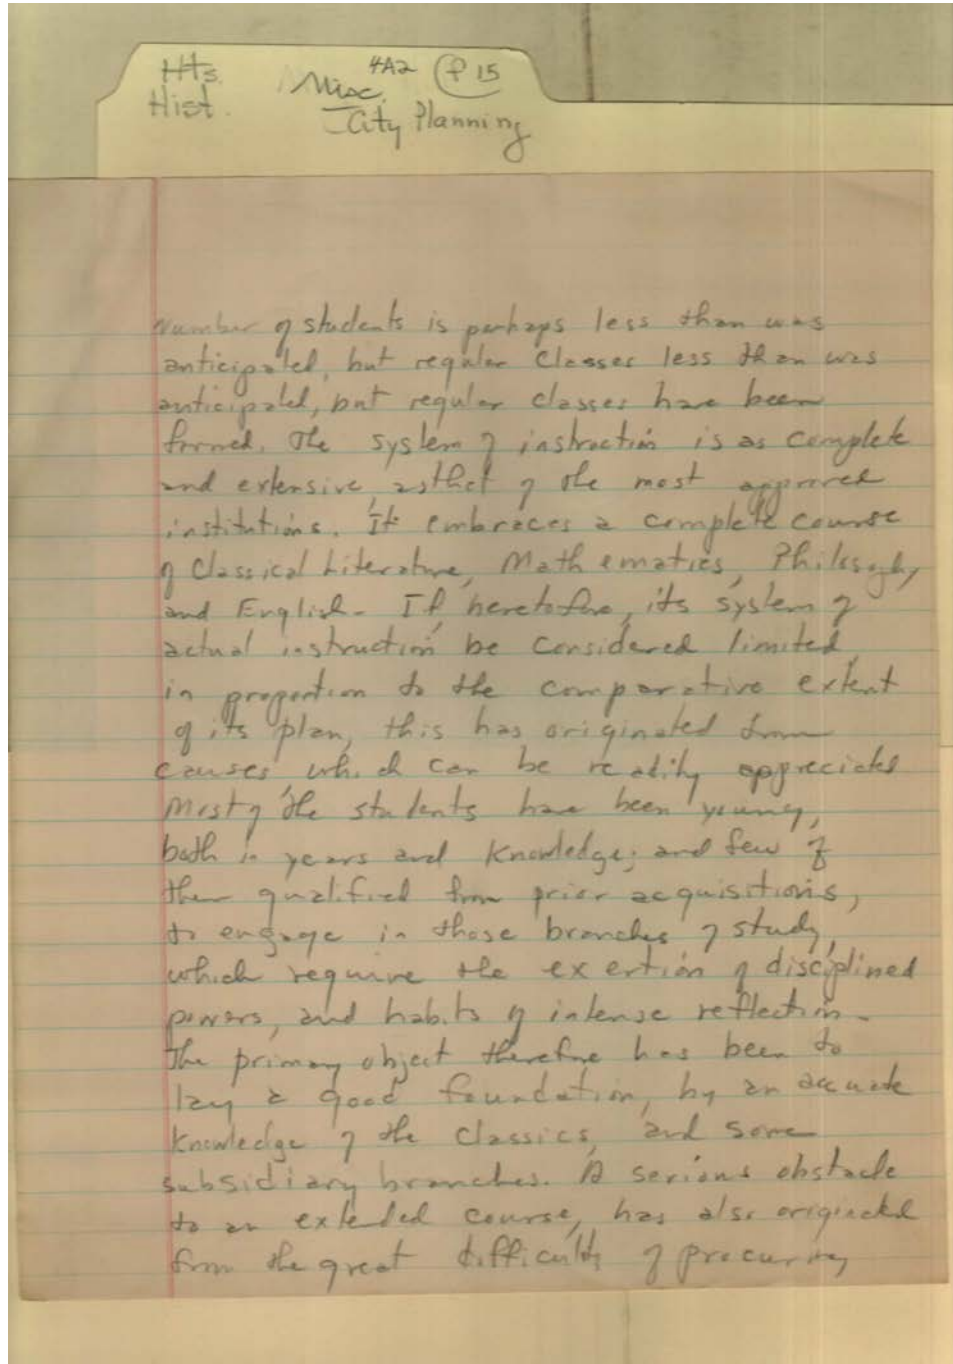 Hts. Misc. 4A2 f 15
Hist. City Planning
Number of students is perhaps less than was
anticipated, but regular Classes less than was
anticipated, but regular classes have been
formed. The system of instruction is as complete
and extensive, as that of the most approved
institutions. It embraces a complete course
of Classical Literature, Mathematics, Philosophy
and English. If, heretofore, its system of
actual instruction be considered limited,
in proportion to the comparative extent
of its plan, this has originated from
causes which can be readily appreciated
Most of the students have been young,
both in years and Knowledge; and few of
them qualified from prior acquisitions,
to engage in those branches of study,
which require the exertion of disciplined
powers, and habits of intense reflection.
The primary object therefore has been to
lay a good foundation, by an accurate
Knowledge of the Classics, and some
subsidiary branches. A serious obstacle
to an extended course, has also originated
from the great difficulty of procuring